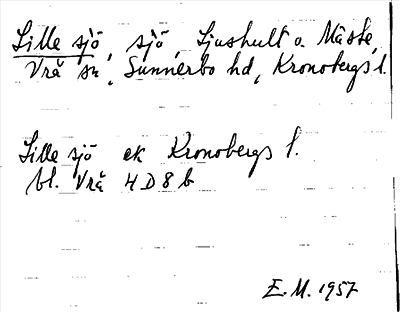 Lille sjö, sjö, Ljushult o. Mäste,
Vrå sn, Sunnerbo hd, Kronobergs l.
Lille sjö ek Kronobergs l.
bl. Vrå 4 D 8 b
E.M. 1957